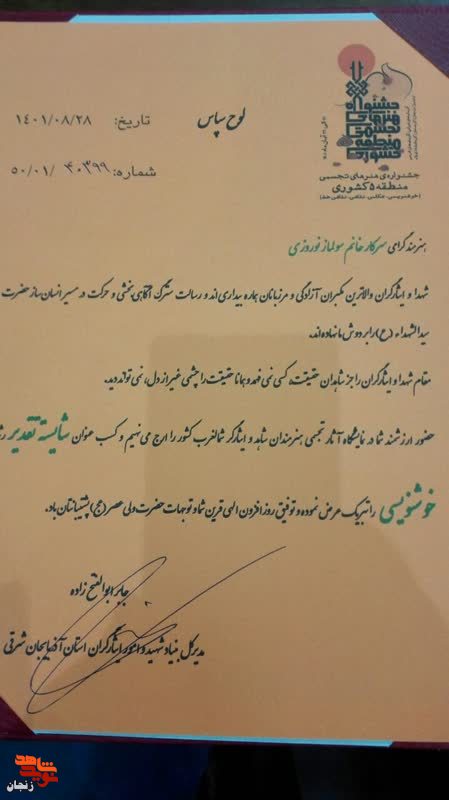 لوح سپاس
تاریخ: ۱۴۰۱/۰۸/۲۸
شماره: ۵۰/۰۱/ ۴۰۳۹۹
جشنواره‌ی هنرهای تجسمی
منطقه ۵ کشوری
(خوشنویسی، عکاسی، نقاشی، نقاشی خط)
هنرمند گرامی سرکار خانم سولماز نوروزی
شهدا و ایثارگران والاترین مکبران آزادگی و مرزبانان هماره بیداری‌اند و رسالت سترگ آگاهی بخشی و حرکت در مسیر انسان ساز حضرت
سیدالشهداء (ع) را بر دوش ما نهاده‌اند.
مقام شهدا و ایثارگران را جز شاهدان حقیقت، کسی نمی فهمد و همانا حقیقت را چشمی غیر از دل، نمی تواند دید.
حضور ارزشمند شما در نمایشگاه آثار تجسمی هنرمندان شاهد و ایثارگر شمالغرب کشور را ارج می نهیم و کسب عنوان شایسته تقدیر
خوشنویسی را تبریک عرض نموده و توفیق روزافزون الهی قرین شما و توجهات حضرت ولی عصر (عج) پشتیبانتان باد.
جابر ابوالفتح زاده
مدیرکل بنیاد شهید و امور ایثارگران استان آذربایجان شرقی
نوید شاهد
زنجان